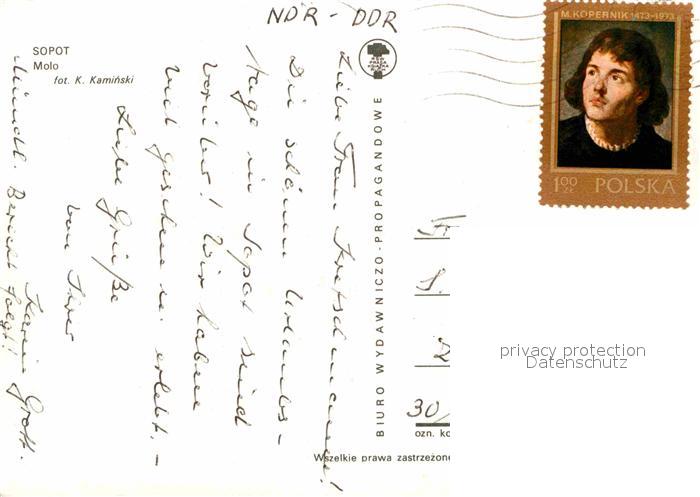 NDR - DDR
SOPOT
Molo
fot. K. Kamiński
Liebe Frau Kretschmann!
Die schönen Urlaubs-
tage in Sopot sind
vorüber! Wir haben
viel gesehen u. erlebt. –
Liebe Grüße
von Ihrer
Karin Groth.
Mündl. Bericht folgt!
BIURO WYDAWNICZO-PROPAGANDOWE
M. KOPERNIK 1473-1973
1,00 ZŁ POLSKA
privacy protection
Datenschutz
30/
ozn. ko
Wszelkie prawa zastrzeżone